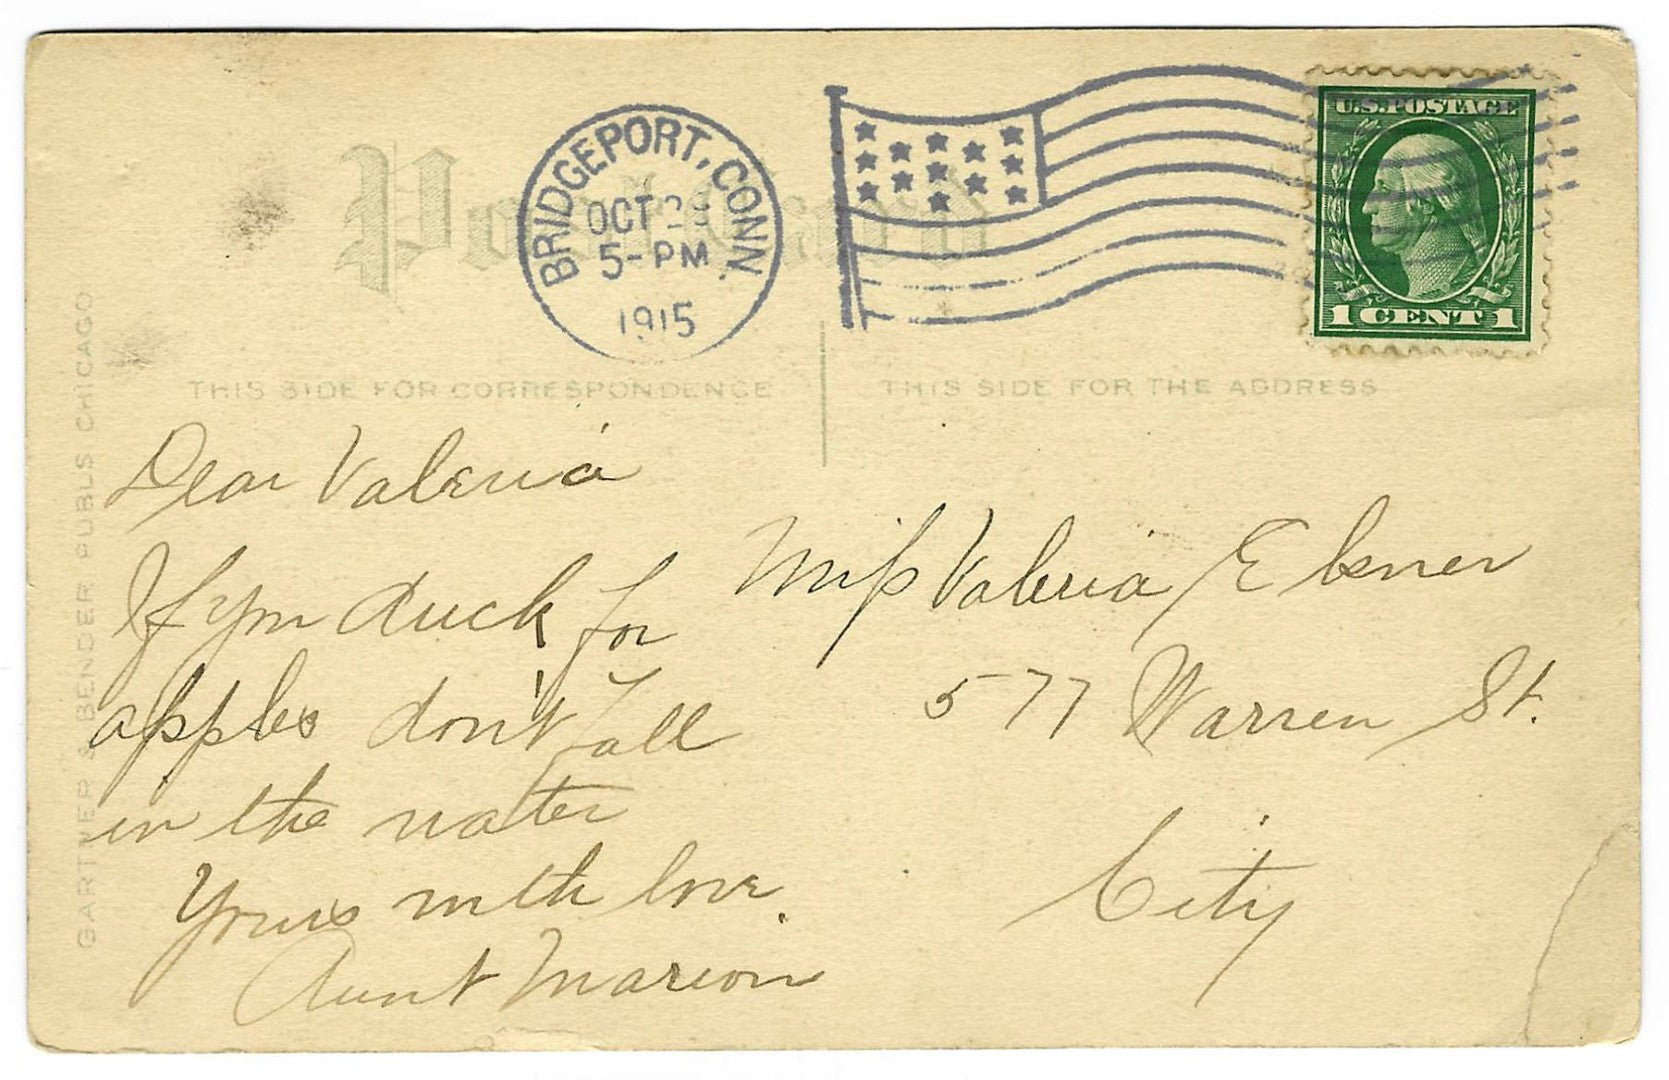 Post Card
BRIDGEPORT, CONN.
OCT 2
5-PM
1915
U.S. POSTAGE
1 CENT 1
THIS SIDE FOR CORRESPONDENCE
THIS SIDE FOR THE ADDRESS
GARTNER & BENDER PUBLS CHICAGO
Dear Valeria
If you duck for
apples don't fall
in the water
Yours with love.
Aunt Marion
Miss Valeria Elsner
577 Warren St.
City